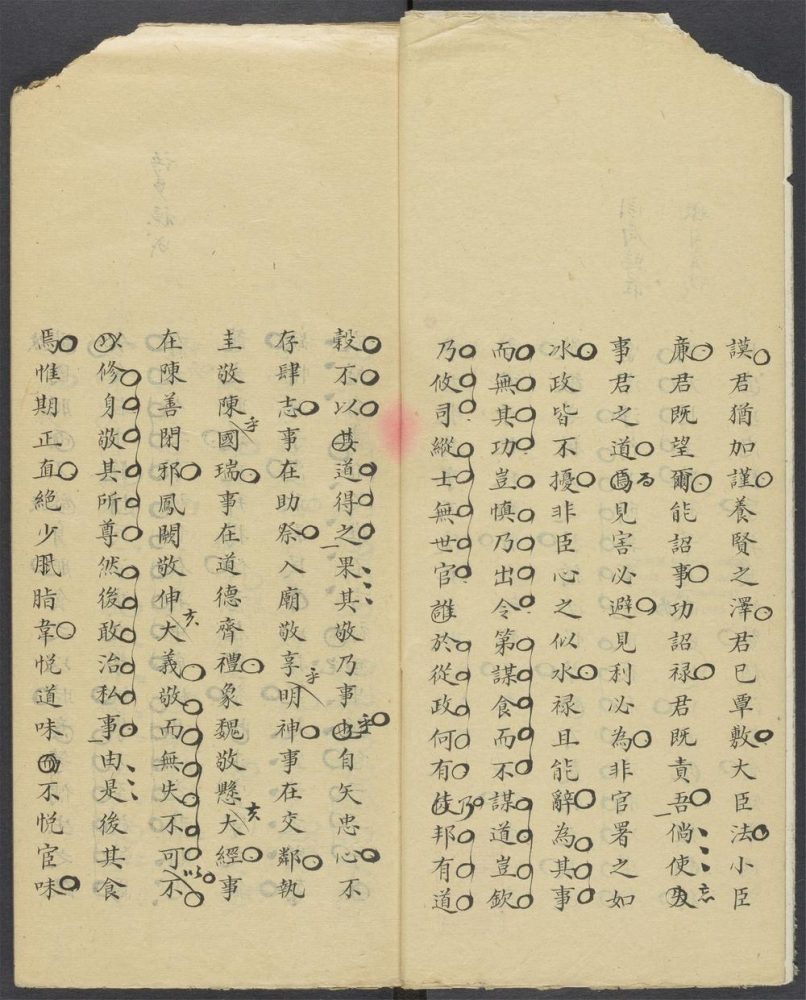 謨君猶加謹養賢之澤君已覃敷大臣法小臣
廉君既望爾能詔事功詔禄君既責吾倘使忘
事君之道焉見害必避見利必為非官署之如
冰政皆不擾非臣心之似水禄且能辭為其事
而無其功豈慎乃出令第謀食而不謀道豈欽
乃攸司縱士無世官誰於從政何有使乃邦有道
穀不以其道得之果其敬乃事也乎自矢忠心不
存肆志事在助祭入廟敬享明神事在交鄰執
圭敬陳國瑞事在道德齊禮象魏敬懸大經事
在陳善閉邪鳳闕敬伸大義敬而無失不可不以
以修身敬其所尊然後敢治私事由是後其食
焉惟期正直絕少脂韋悅道味而不悅宦味